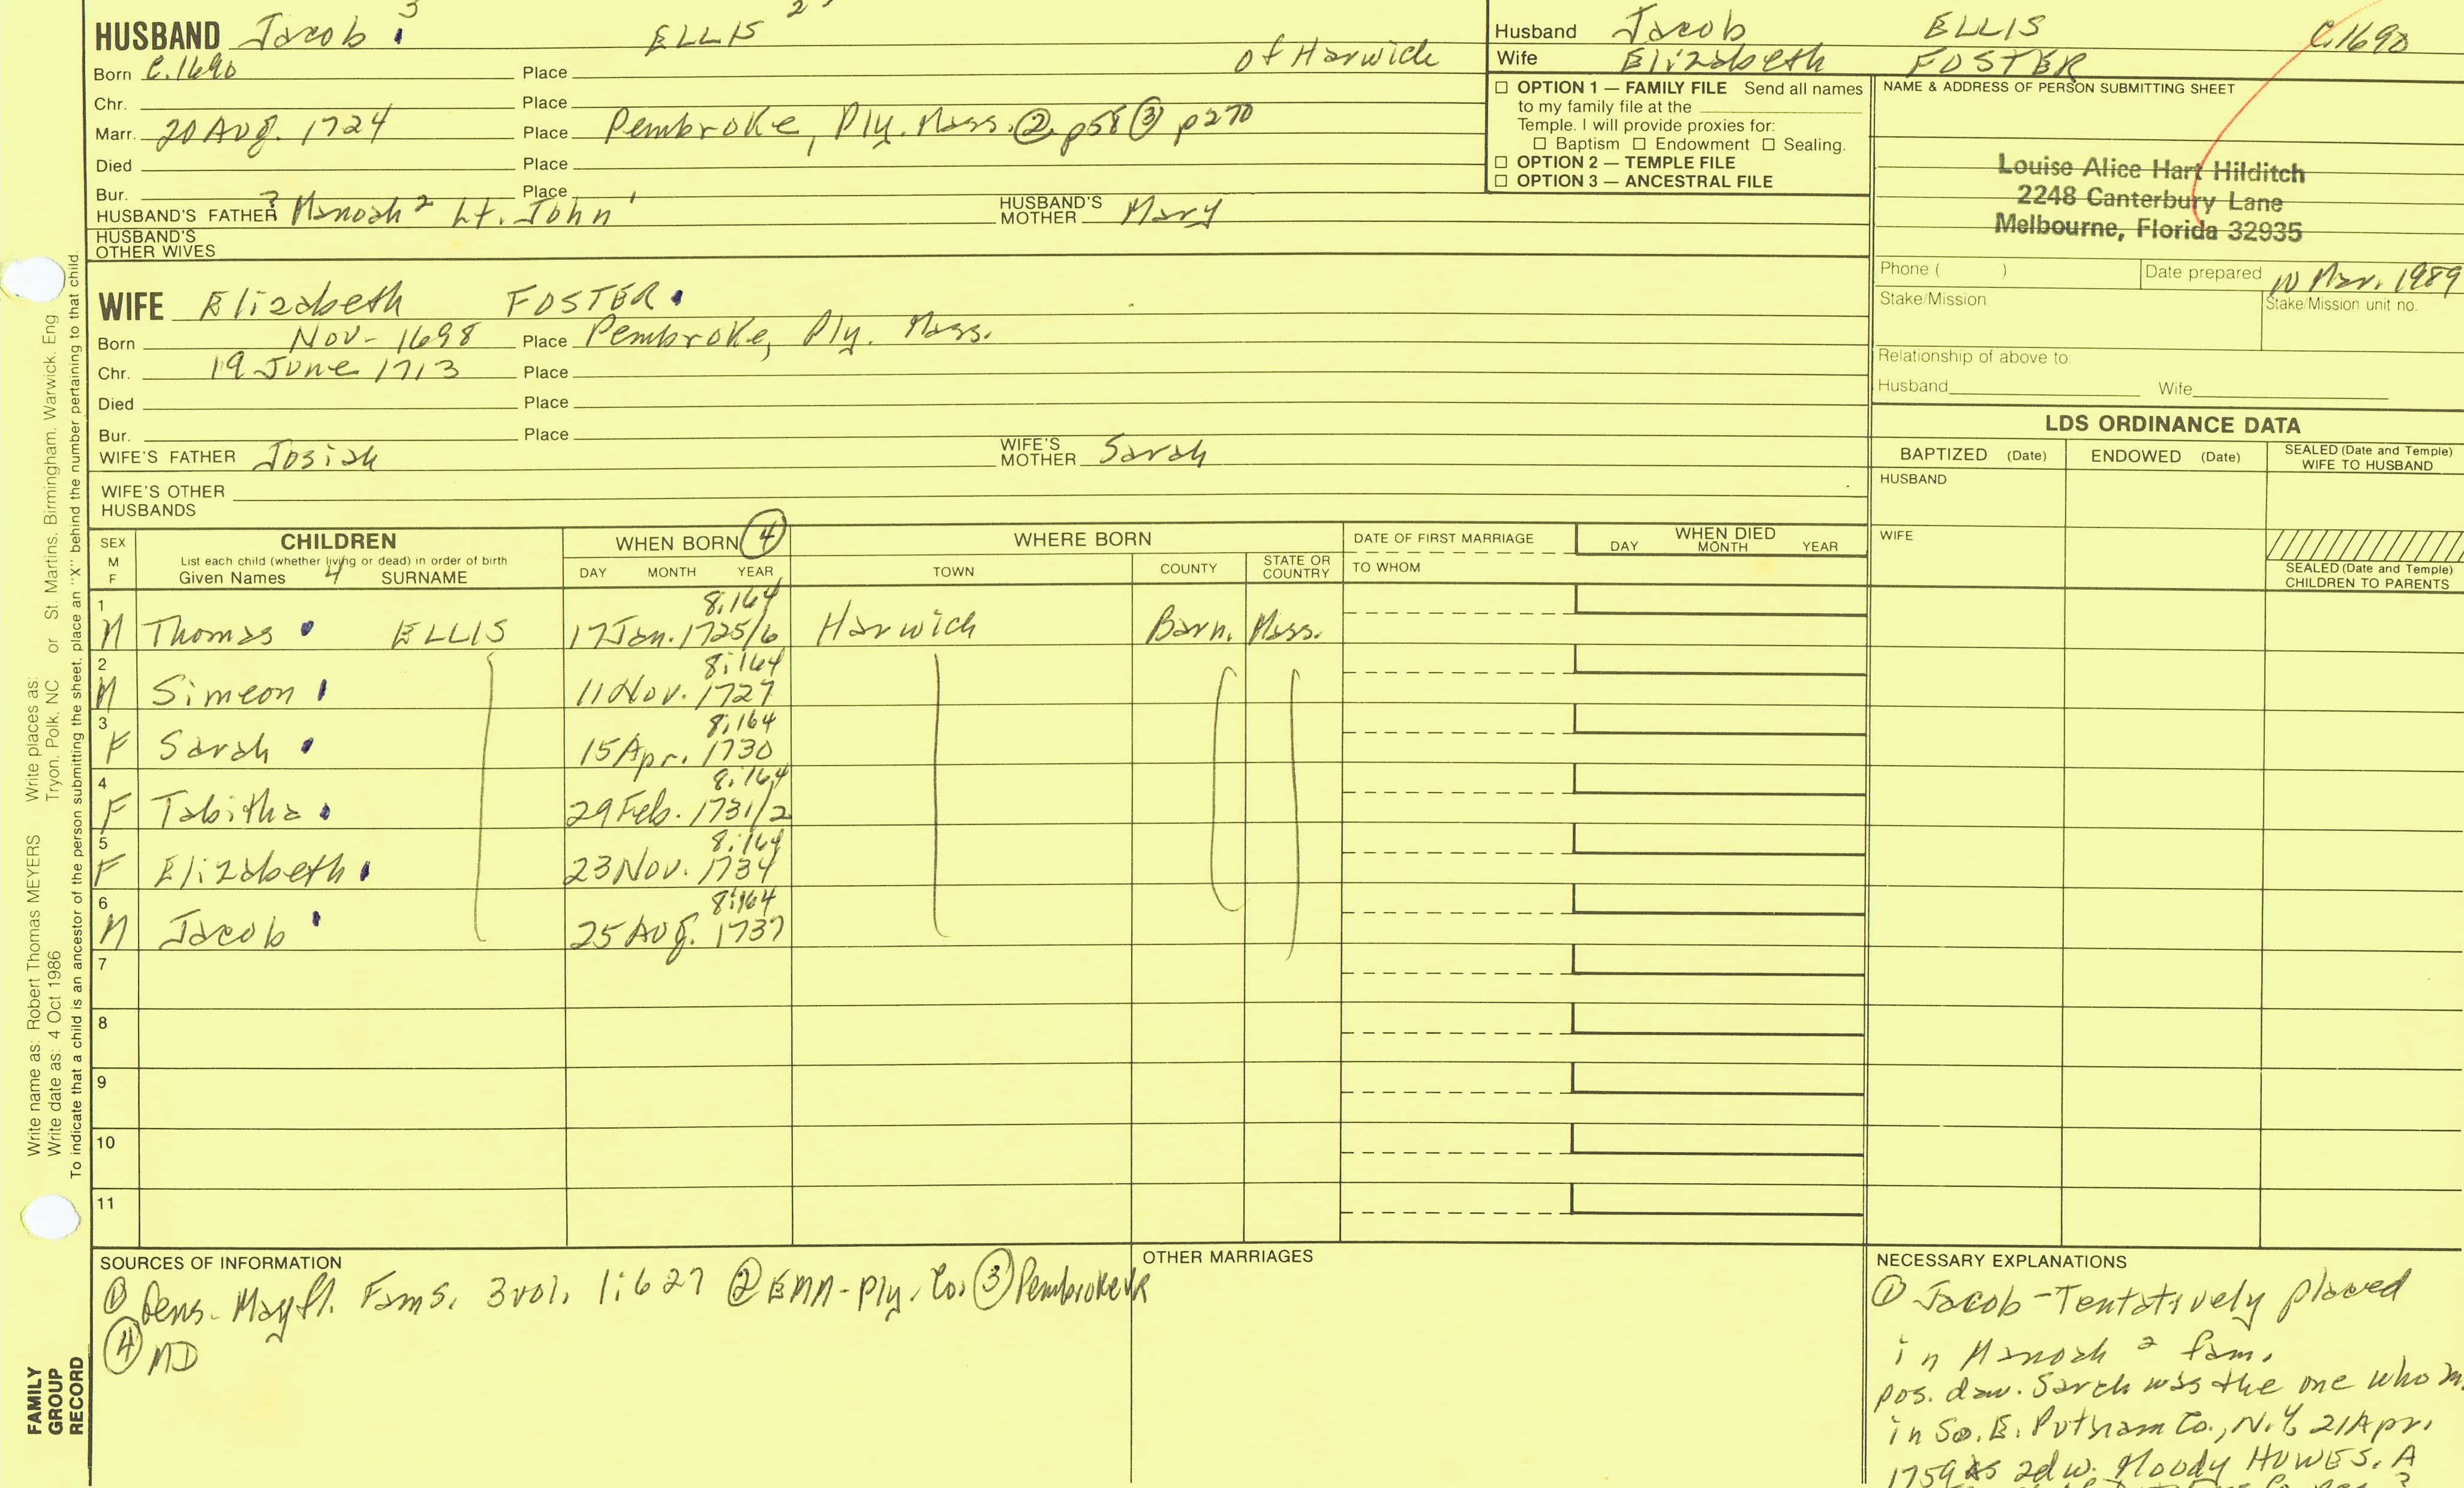 HUSBAND Jacob 3 ELLIS 2 of Harwich
Born C.1690 Place
Chr. Place
Marr. 20 Aug. 1724 Place Pembroke, Ply. Mass. ② p58 ③ p270
Died Place
Bur. Place
HUSBAND'S FATHER ? Manoah 2 Lt. John 1 HUSBAND'S MOTHER Mary
HUSBAND'S OTHER WIVES
WIFE Elizabeth FOSTER
Born Nov- 1698 Place Pembroke, Ply. Mass.
Chr. 19 June 1713 Place
Died Place
Bur. Place
WIFE'S FATHER Josiah WIFE'S MOTHER Sarah
WIFE'S OTHER HUSBANDS
Husband Jacob ELLIS C.1690
Wife Elizabeth FOSTER
☐ OPTION 1 — FAMILY FILE Send all names
to my family file at the
Temple. I will provide proxies for:
☐ Baptism ☐ Endowment ☐ Sealing.
☐ OPTION 2 — TEMPLE FILE
☐ OPTION 3 — ANCESTRAL FILE
NAME & ADDRESS OF PERSON SUBMITTING SHEET
Louise Alice Hart Hilditch
2248 Canterbury Lane
Melbourne, Florida 32935
Phone ( ) Date prepared 10 Mar. 1989
Stake/Mission Stake/Mission unit no.
Relationship of above to:
Husband Wife
LDS ORDINANCE DATA
BAPTIZED (Date) ENDOWED (Date) SEALED (Date and Temple) WIFE TO HUSBAND
HUSBAND
WIFE
SEALED (Date and Temple) CHILDREN TO PARENTS
SEX M F CHILDREN WHEN BORN ④ WHERE BORN DATE OF FIRST MARRIAGE WHEN DIED
List each child (whether living or dead) in order of birth
Given Names 4 SURNAME DAY MONTH YEAR TOWN COUNTY STATE OR COUNTRY TO WHOM DAY MONTH YEAR
8:164
1 M Thomas ELLIS 17 Jan. 1725/6 Harwich Barn. Mass.
8:164
2 M Simeon 11 Nov. 1727
8:164
3 F Sarah 15 Apr. 1730
8:164
4 F Tabitha 29 Feb. 1731/2
8:164
5 F Elizabeth 23 Nov. 1734
8:164
6 M Jacob 25 Aug. 1737
7
8
9
10
11
SOURCES OF INFORMATION
① Gens. Mayfl. Fams. 3vol. 1:627 ② EMM-Ply. Co. ③ Pembroke VR
④ MD
OTHER MARRIAGES
NECESSARY EXPLANATIONS
① Jacob - Tentatively placed
in Manoah 2 fam.
pos. dau. Sarah was the one who m.
in So. E. Putnam Co., N.Y. 21 Apr.
1759 as 2d w. Moody HOWES. A
Write name as: Robert Thomas MEYERS Write places as: St. Martins, Birmingham, Warwick, Eng.
Write date as: 4 Oct 1986 Tryon, Polk, NC or
To indicate that a child is an ancestor of the person submitting the sheet, place an "X" behind the number pertaining to that child.
FAMILY
GROUP
RECORD